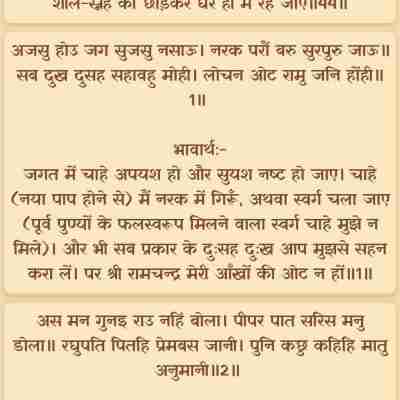 शील-स्नेह को छोड़कर घर ही में रह जाएँ॥44॥
अजसु होउ जग सुजसु नसाऊ। नरक परौं बरु सुरपुरु जाऊ॥
सब दुख दुसह सहावहु मोही। लोचन ओट रामु जनि होंही॥
1॥
भावार्थ:-
जगत में चाहे अपयश हो और सुयश नष्ट हो जाए। चाहे
(नया पाप होने से) मैं नरक में गिरूँ, अथवा स्वर्ग चला जाए
(पूर्व पुण्यों के फलस्वरूप मिलने वाला स्वर्ग चाहे मुझे न
मिले)। और भी सब प्रकार के दुःसह दुःख आप मुझसे सहन
करा लें। पर श्री रामचन्द्र मेरी आँखों की ओट न हों॥1॥
अस मन गुनइ राउ नहिं बोला। पीपर पात सरिस मनु
डोला॥ रघुपति पितहि प्रेमबस जानी। पुनि कछु कहिहि मातु
अनुमानी॥2॥